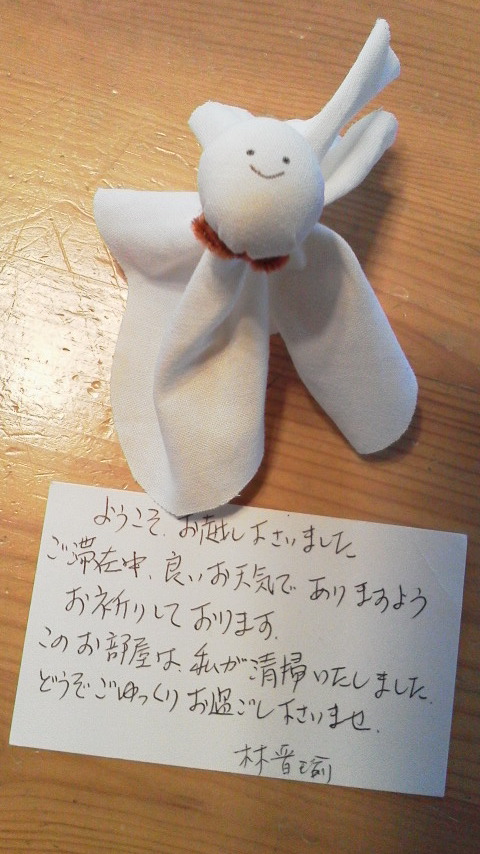 ようこそ、お越し下さいました
ご滞在中、良いお天気でありますよう
お祈りしております。
このお部屋は、私が清掃いたしました。
どうぞごゆっくりお過ごし下さいませ。
林晋